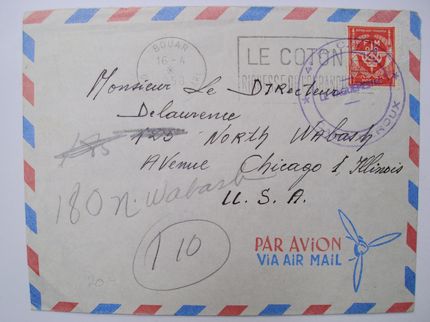 BOUAR
16-4
LE COTON
F M
Monsieur Le Directeur
Delaurence
125 North Wabash
Avenue Chicago 1, Illinois
U. S. A.
180 N. Wabash
T 10
PAR AVION
VIA AIR MAIL